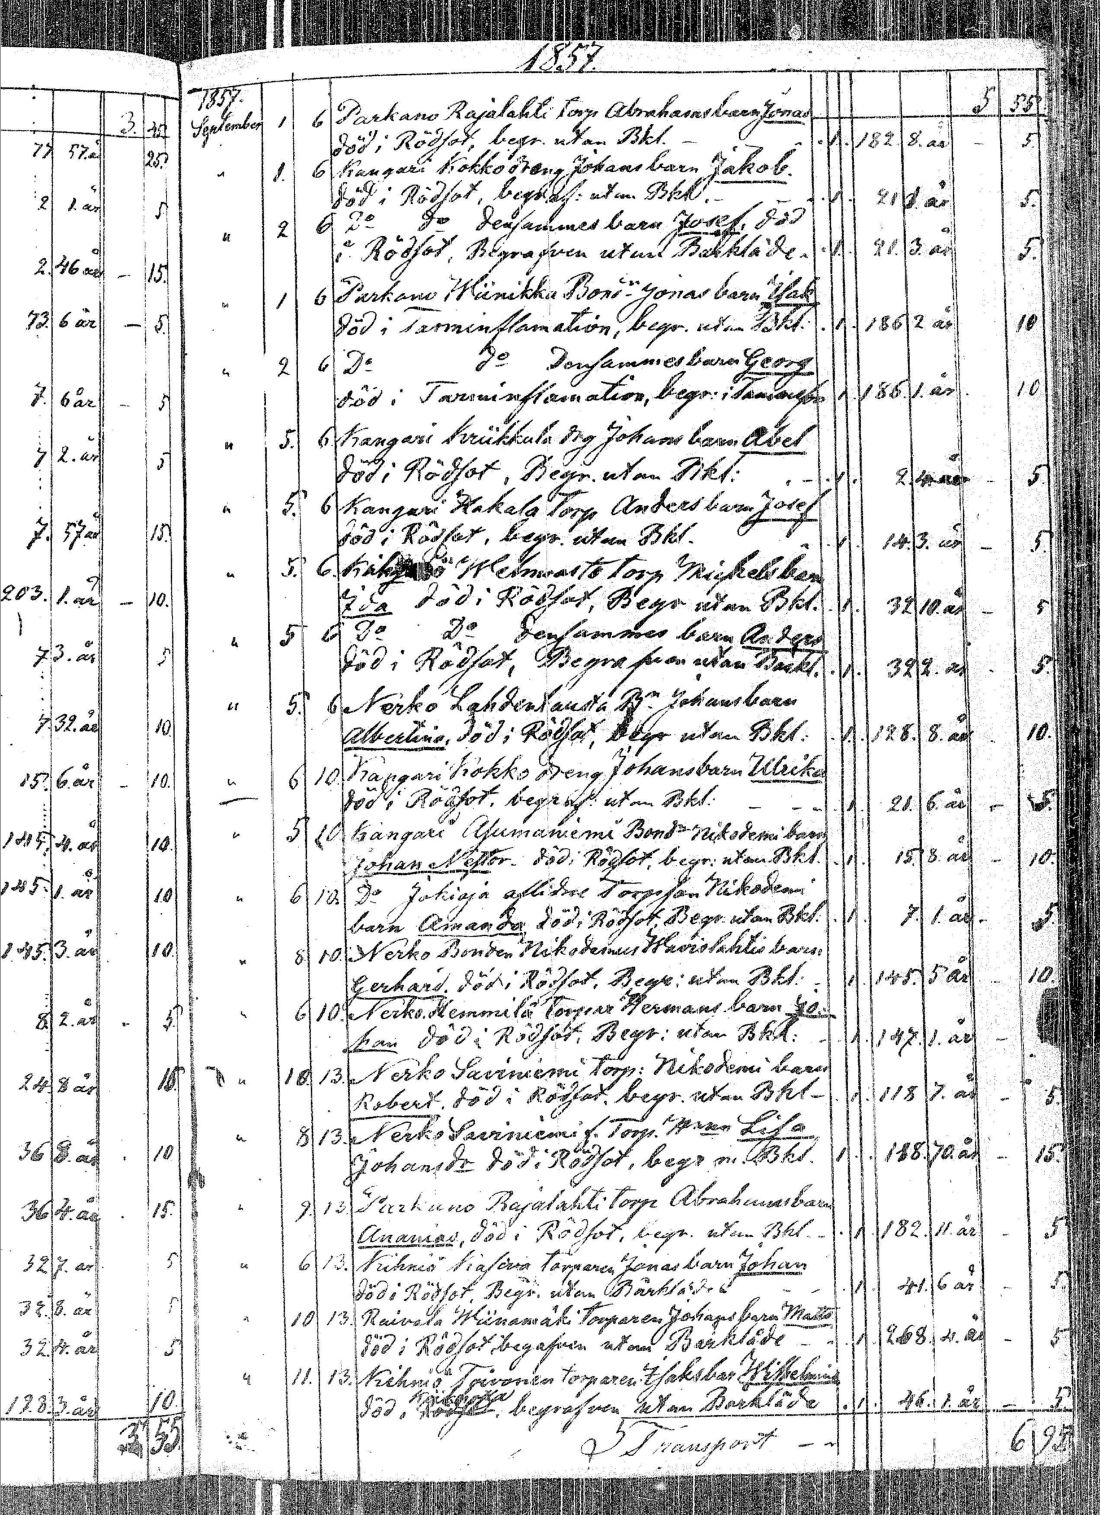 1857.
3 45
77 57 år 25
2 1. år 5
2. 46 år – 15.
73. 6 år – 5.
7. 6 år – 5
7 2. år 5
7. 57 år 15.
203. 1. år – 10.
7 3. år 5
7 32. år 10
15. 6 år – 10.
145. 4. år 10.
145. 1. år 10
145. 3 år 10.
8 2. år – 5
24 8 år 10.
36 8. år . 10
36 4. år . 15.
32 7. år 5
32. 8. år 5
32 4. år 5
128. 3. år 10.
3 55
1857. 5 55
September 1 6 Parkano Rajalahti Torp Abrahams barn Jonas
död i Rödsot, begr. utan Bkl. – 1. 182. 8. år – 5.
" 1. 6 Kangari Kokko dreng Johans barn Jakob.
död i Rödsot, begraf: utan Bkl. – 1. 21 1. år 5.
" 2 6 Do do densammes barn Josef, död
i Rödsot, Begrafven utan Barkläde. 1. 21. 3. år 5.
" 1 6 Parkano Wiinikka Bond:n Jonas barn Isak
död i Tarminflamation, begr. utan Bkl. 1. 186 2 år 10
" 2 6 Do do Densammes barn Georg
död i Tarminflamation, begr: i 1 186. 1. år 10
" 5. 6 Kangari Kriikkula drg Johans barn Abel
död i Rödsot, Begr. utan Bkl: 1. 2. 4 år – 5.
" 5. 6 Kangari Hakala Torp Anders barn Josef
död i Rödsot, begr. utan Bkl. 1 14. 3. år – 5.
" 5. 6. torp Mickels barn
Ida död i Rödsot, Begr utan Bkl. 1. 32 10. år – 5
" 5 6 Do Do densammes barn Anders
död i Rödsot, Begrafven utan Barkl. 1. 32 2. år – 5.
" 5. 6 Nerko Lahdenkausta Bn Johans barn
Albertina, död i Rödsot, begr utan Bkl: 1. 128. 8. år – 10.
" 6 10. Kangari Kokko dreng Johans barn Ulrika
död i Rödsot, begraf: utan Bkl: – – 1. 21. 6. år – 5.
" 5 10. Kangari Asumaniemi Bonds Nikodemi barn
Johan Nestor. död i Rödsot, begr: utan Bkl. 1. 15 8. år – 10.
" 6 10. Do Jokioja aflidne Torp son Nikodemi
barn Amanda, död i Rödsot, Begr. utan Bkl. 1. 7. 1. år – 5.
" 8 10. Nerko Bonden Nikodemus Haviolahtis barn
Gerhard. död i Rödsot. Begr: utan Bkl. 1. 145. 5 år – 10.
" 6 10. Nerko Hemmilä torpar Hermans barn Jo-
han död i Rödsot. Begr: utan Bkl: 1. 147. 1. år –
" 10. 13. Nerko Saviniemi torp: Nikodemi barn
Robert, död i Rödsot, begr. utan Bkl – 1. 118 7. år – 5.
" 8 13. Nerko Saviniemi f. Torp. Lisa
Johansdr död i Rödsot, begr m. Bkl. 1. 188. 70. år – 15.
" 9. 13. Parkano Rajalahti torp Abrahams barn
Ananias, död i Rödsot, begr. utan Bkl. – 1. 182. 11. år – 5
" 6 13. Kihniö Kasiva torparen Jonas barn Johan
död i Rödsot, Begr. utan Bärkläde 1. 41. 6 år – 5.
" 10 13. Raivala Wiinamäki Torparen Johans barn Matts
död i Rödsot begafven utan Barkläde – 1. 268. 4. år – 5
" 11. 13. Kihniö Toivonen torparen Isaks bar Wilhelmina
död i Rödsot, begrafven utan Barkläde 1. 46. 1. år – 5.
Transport – – 6 95